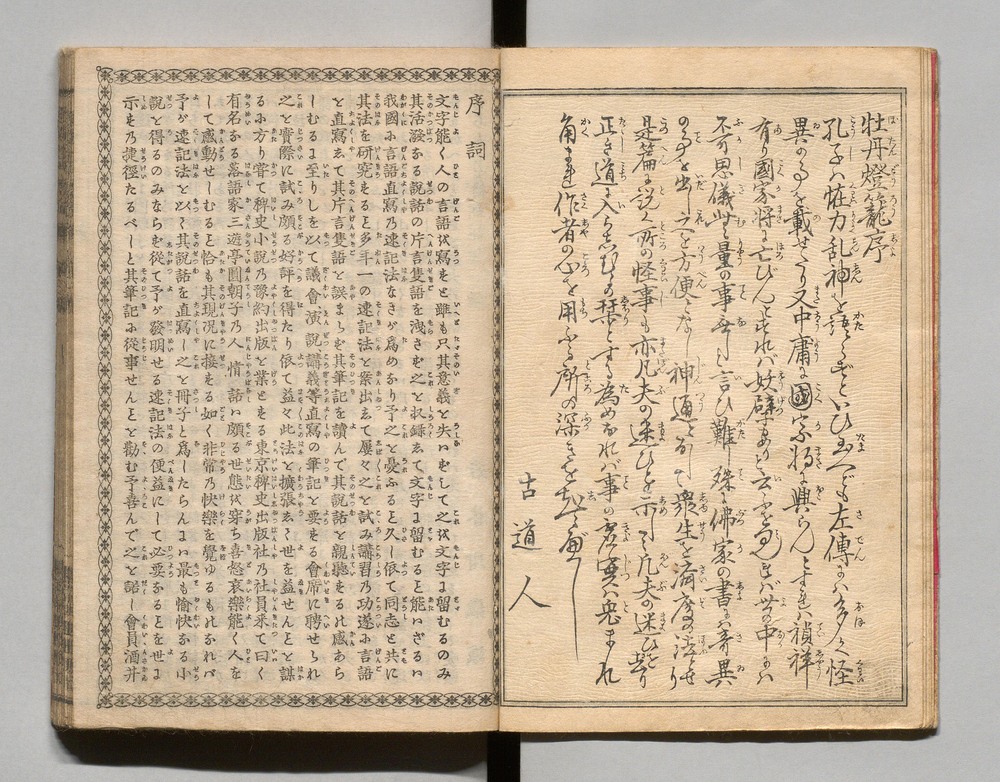 牡丹燈籠序
孔子ハ怪力乱神を語らずといひ玉へども左傳にハ多く怪
異の事を載せたり又中庸に國家将に興らんとすれハ禎祥
有り國家将に亡びんとすれバ妖孽ありと云ふを見れバ世の中にハ
不可思儀無量の事なしと言ひ難し殊に佛家の書にハ奇異
の事を出し之を方便となし神通となして衆生を済度の法とせり
是篇に説く所の怪事も亦凡夫の迷ひを示して凡夫の迷ひを覺し
正き道に入らしむるの栞とする為めなれバ事の虚實ハ兎まれ
角まれ作者の心を用ふる所の深きを知るべし
古道人
序詞
文字能く人の言語を寫すと雖も只其意義を失はずして之を文字に留むるのみ
其活溌なる説話の片言隻語を洩さず之を収録して文字に留むること能はざるは
我國に言語直寫の速記法なきが為めなり予之を憂ふること久し依て同志と共に
其法を研究すること多年一の速記法を案出して屡々之を試み講習の功遂に言語
を直寫して其片言隻語を誤まらず其筆記を讀んで其説話を親聽するの感あら
しむるに至りしを以て議會演説講義等直寫の筆記を要する會席に聘せられ
之を實際に試み頗る好評を得たり依て益々此法を擴張して世を益せんと謀
るに方り嘗て稗史小説の豫約出版を業とする東京稗史出版社の社員來て曰く
有名なる落語家三遊亭圓朝子の人情話は頗る世態を穿ち喜怒哀樂能く人を
して感動せしむること恰も其現况に接する如く非常の快樂を覺ゆるものなれバ
予が速記法を以て其説話を直寫し之を冊子と爲したらんには最も愉快なる小
説を得るのみならず從て予が發明せる速記法の便益にして必要なることを世に
示すの捷徑たるべしと其筆記に從事せんことを勸む予喜んで之を諾し會員酒井